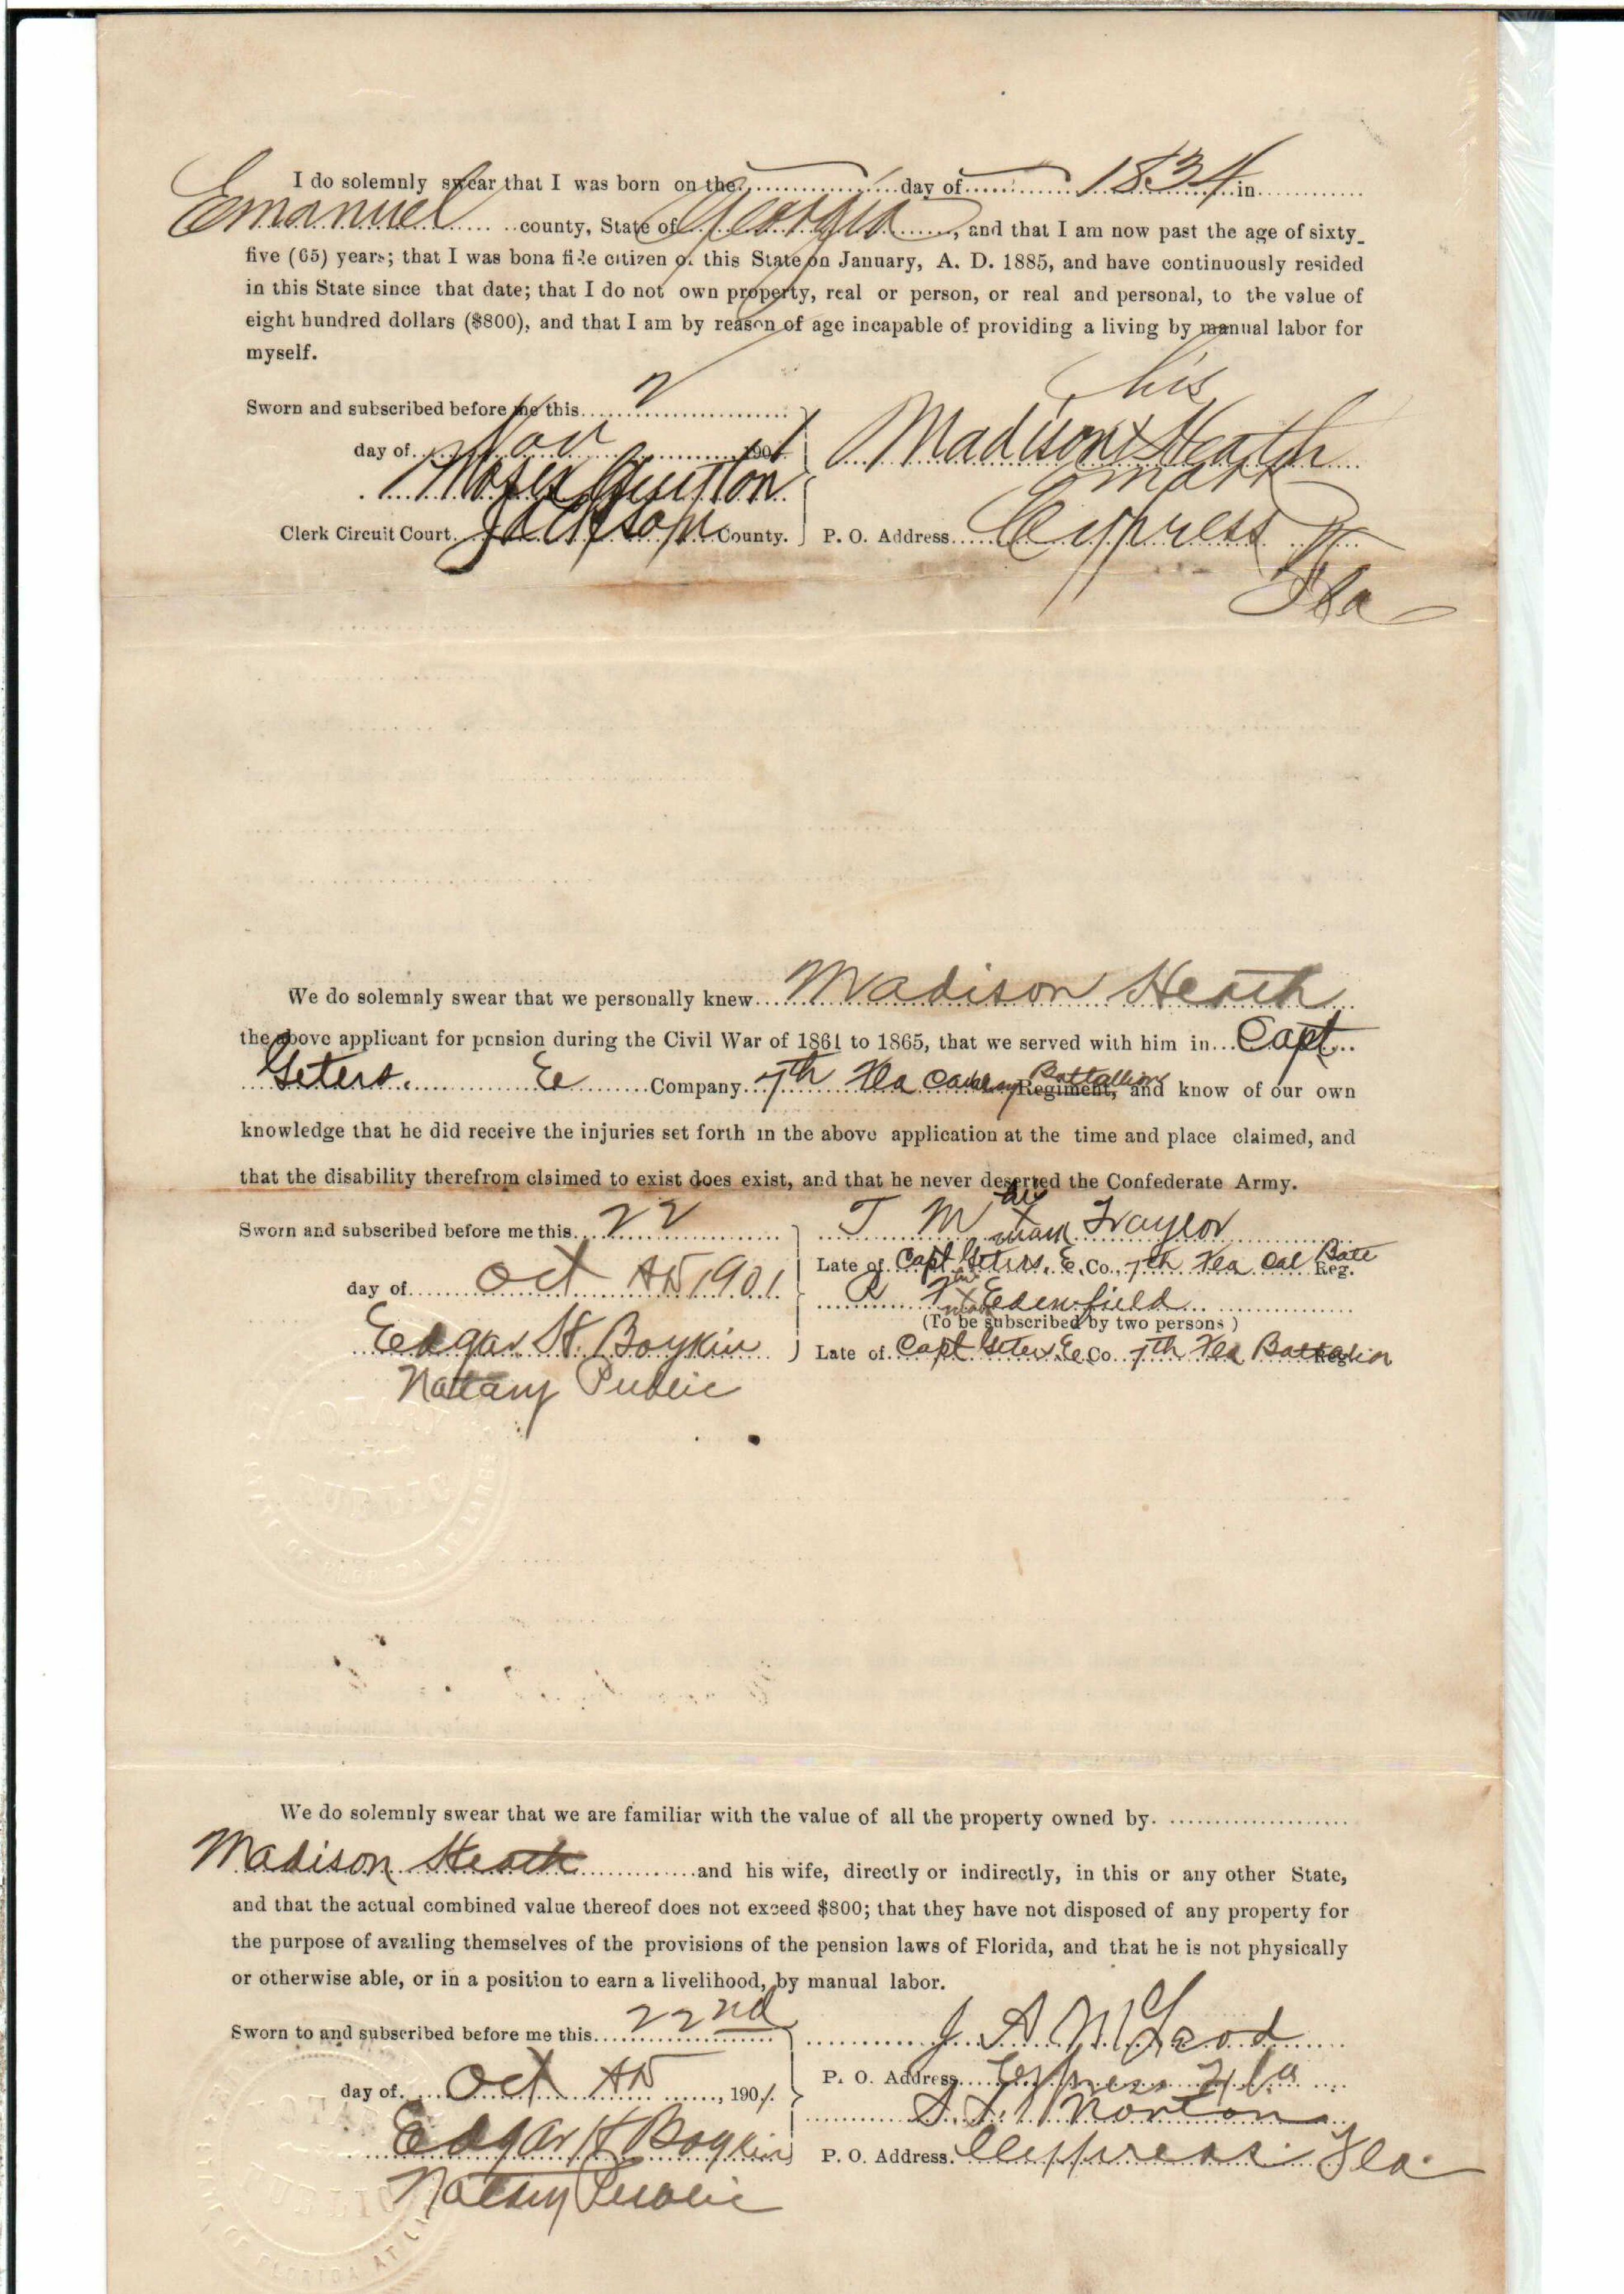 I do solemnly swear that I was born on the ........ day of ........ 1834 in ........
Emanuel county, State of Georgia, and that I am now past the age of sixty-
five (65) years; that I was bona fide citizen of this State on January, A. D. 1885, and have continuously resided
in this State since that date; that I do not own property, real or person, or real and personal, to the value of
eight hundred dollars ($800), and that I am by reason of age incapable of providing a living by manual labor for
myself.
his
Sworn and subscribed before me this 2
day of Nov 1901 Madison X Heath
mark
Moses Guyton
Clerk Circuit Court. Jackson County. P. O. Address Cypress
Fla
We do solemnly swear that we personally knew Madison Heath
the above applicant for pension during the Civil War of 1861 to 1865, that we served with him in Capt
Geters. E Company 7th Fla Cavalry Battallion Regiment, and know of our own
knowledge that he did receive the injuries set forth in the above application at the time and place claimed, and
that the disability therefrom claimed to exist does exist, and that he never deserted the Confederate Army.
Sworn and subscribed before me this 22 T M his X mark Traylor
Late of Capt Geters, E, Co., 7th Fla Cal Batt Reg.
day of Oct AD 1901
R F his X mark Edenfield
(To be subscribed by two persons)
Edgar H. Boykin Late of Capt Geters E Co 7th Fla Battalion Reg
Nottary Public
NOTARY PUBLIC
STATE OF FLORIDA AT LARGE
We do solemnly swear that we are familiar with the value of all the property owned by
Madison Heath and his wife, directly or indirectly, in this or any other State,
and that the actual combined value thereof does not exceed $800; that they have not disposed of any property for
the purpose of availing themselves of the provisions of the pension laws of Florida, and that he is not physically
or otherwise able, or in a position to earn a livelihood, by manual labor.
Sworn to and subscribed before me this 22nd J. A McLeod
P. O. Address Cypress Fla
day of Oct AD, 1901
Norton
Edgar H Boykin P. O. Address. Cypress Fla.
Notary Public
STATE OF FLORIDA AT LARGE